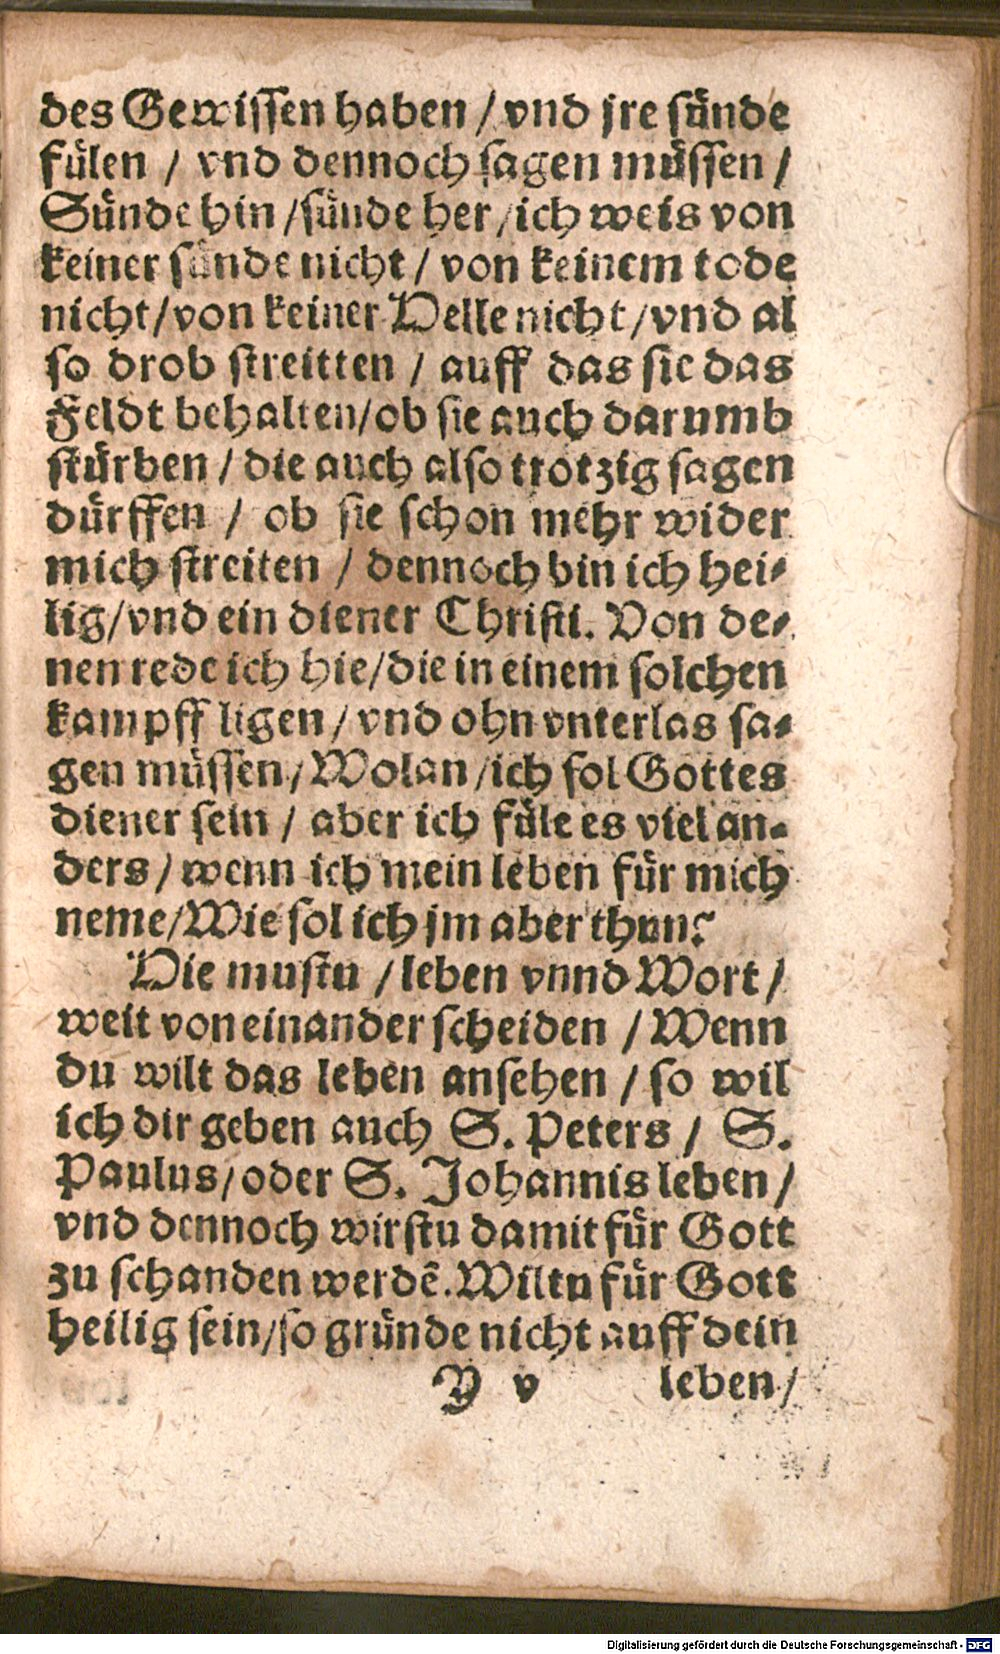 des Gewissen haben / vnd jre sünde
fülen / vnd dennoch sagen müssen /
Sünde hin / sünde her / ich weis von
keiner sünde nicht / von keinem tode
nicht / von keiner Helle nicht / vnd al
so drob streitten / auff das sie das
Feldt behalten / ob sie auch darumb
stürben / die auch also trotzig sagen
dürffen / ob sie schon mehr wider
mich streiten / dennoch bin ich hei-
lig / vnd ein diener Christi. Von de-
nen rede ich hie / die in einem solchen
kampff ligen / vnd ohn vnterlas sa-
gen müssen / Wolan / ich sol Gottes
diener sein / aber ich füle es viel an-
ders / wenn ich mein leben für mich
neme / Wie sol ich jm aber thun?
Hie mustu / leben vnnd Wort /
weit von einander scheiden / Wenn
du wilt das leben ansehen / so wil
ich dir geben auch S. Peters / S.
Paulus / oder S. Johannis leben /
vnd dennoch wirstu damit für Gott
zu schanden werdẽ. Wiltu für Gott
heilig sein / so gründe nicht auff dein
Y v leben /
Digitalisierung gefördert durch die Deutsche Forschungsgemeinschaft - DFG